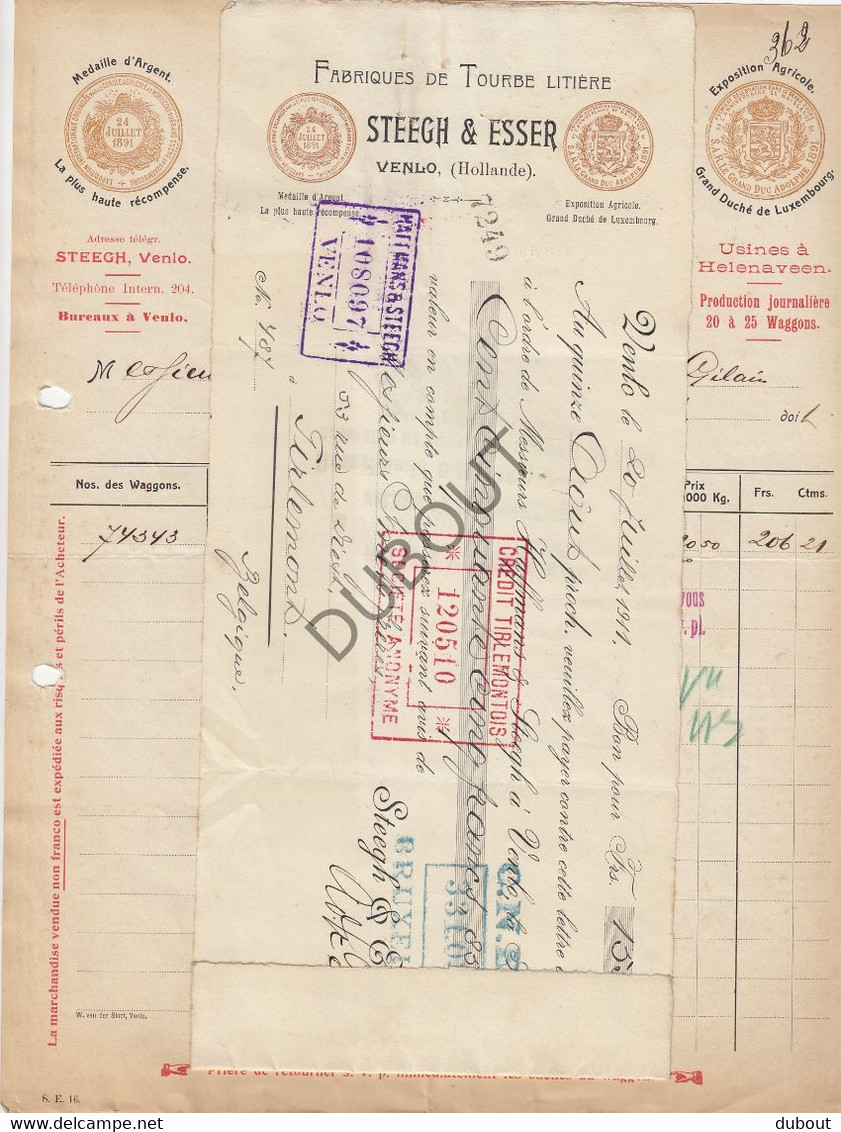 362
Medaille d'Argent.
24
JUILLET
1891
La plus haute récompense.
Adresse télégr.
STEEGH, Venlo.
Téléphone Intern. 204.
Bureaux à Venlo.
Exposition Agricole.
S.A.R. LE GRAND DUC ADOLPHE 1891
Grand Duché de Luxembourg.
Usines à
Helenaveen.
Production journalière
20 à 25 Waggons.
Gilain
doi
Nos. des Waggons.
Prix
000 Kg.
Frs.
Ctms.
74343
50
206 21
vous
. pl.
La marchandise vendue non franco est expédiée aux risques et périls de l'Acheteur.
W. van der Sloot, Venlo.
S. E. 16.
FABRIQUES DE TOURBE LITIÈRE
STEEGH & ESSER
VENLO, (Hollande).
24
JUILLET
1891
Medaille d'Argent.
La plus haute récompense.
Exposition Agricole.
Grand Duché de Luxembourg.
7249
Venlo le 20 Juillet 1911. Bon pour Frs. 15
Au quinze Août proch. veuillez payer contre cette lettre
à l'ordre de Messieurs & Steegh à Venlo, la
Cent cinquante cinq francs 85
valeur en compte que passerez suivant avis de
Steegh & E
No. 487
53 rue de Diest,
à Tirlemont.
Belgique.
& STEEGH
108097
VENLO
CRÉDIT TIRLEMONTOIS
120510
SOCIÉTÉ ANONYME
3310
BRUXEL
DUBOUT
dubout